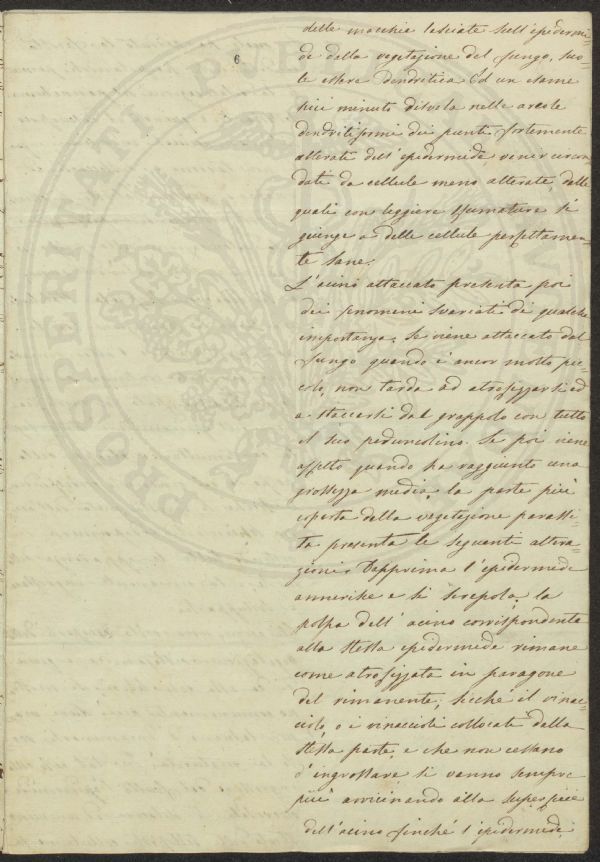 6
delle macchie lasciate sull'epidermi-
de dalla vegetazione del fungo, suo-
le essere dendritica. Ed un esame
più minuto disvela nelle areole
dendritiformi dei punti fortemente
alterati dell'epidermide venir circon
dati da cellule meno alterate, dalle
quali con leggiere sfumature si
giunge a delle cellule perfettamen-
te sane.
L'acino attaccato presenta poi
dei fenomeni svariati di qualche
importanza; se viene attaccato dal
fungo quando è ancor molto pic-
colo, non tarda ad atrofizzarsi ed
a staccarsi dal grappolo con tutto
il suo peduncolino. Se poi viene
affetto quando ha raggiunto una
grossezza media, la parte più
coperta della vegetazione parassi-
ta presenta le seguenti altera-
zioni. Dapprima l'epidermide
annerisce e si screpola; la
polpa dell'acino corrispondente
alla stessa epidermide rimane
come atrofizzata in paragone
del rimanente; sicchè il vinac-
ciolo, o i vinaccioli collocati dalla
stessa parte, e che non cessano
d'ingrossare si vanno sempre
più avvicinando alla superficie
dell'acino finchè l'epidermide
PROSPERITATI PVB